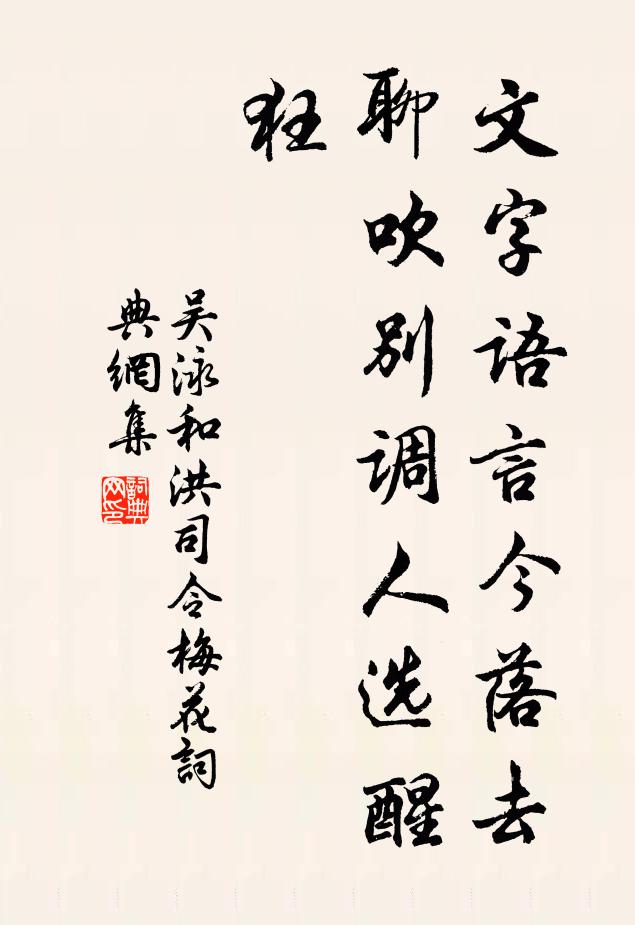 文字語言今落去
聊吹別調人选醒
狂
吴泳和洪司令梅花詞
典網集
詞典
网印